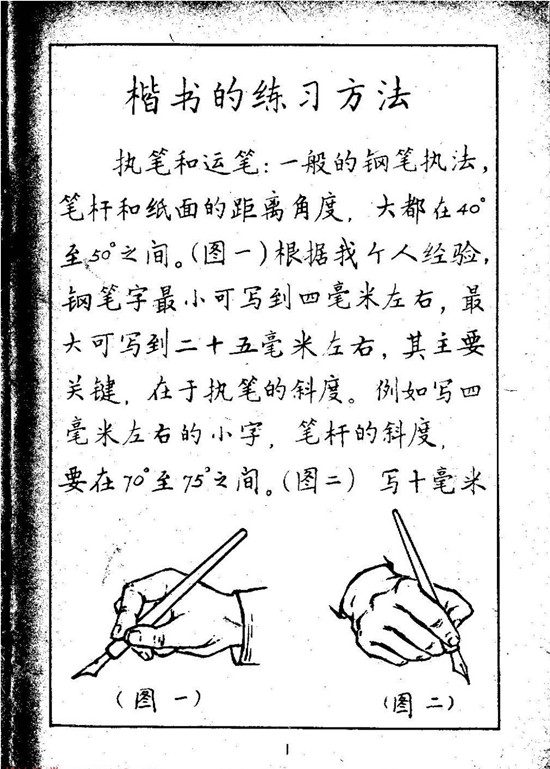 楷书的练习方法
执笔和运笔:一般的钢笔执法,
笔杆和纸面的距离角度，大都在40°
至50°之间。(图一)根据我个人经验,
钢笔字最小可写到四毫米左右，最
大可写到二十五毫米左右，其主要
关键，在于执笔的斜度。例如写四
毫米左右的小字，笔杆的斜度，
要在70°至75°之间。(图二) 写十毫米
(图一) (图二)
1